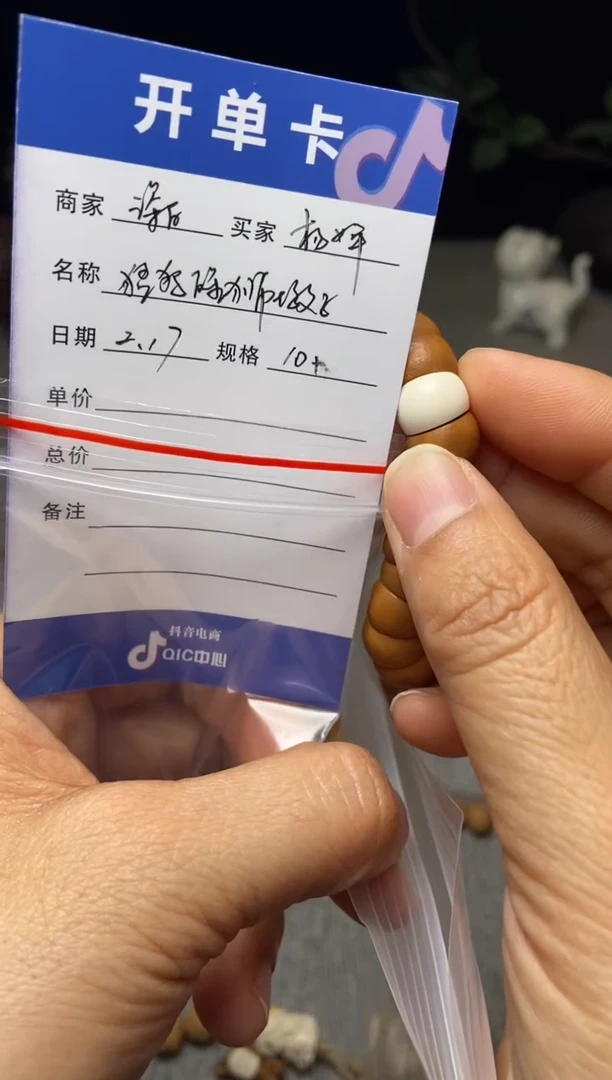 开单卡
商家 买家 杨辉
名称
日期 2.17 规格 10+
单价
总价
备注
抖音电商
QIC中心